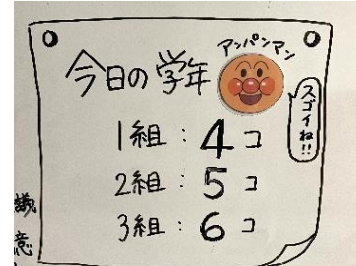 今日の学年
アンパンマン
スゴイね!!
1組：4コ
2組：5コ
3組：6コ
意